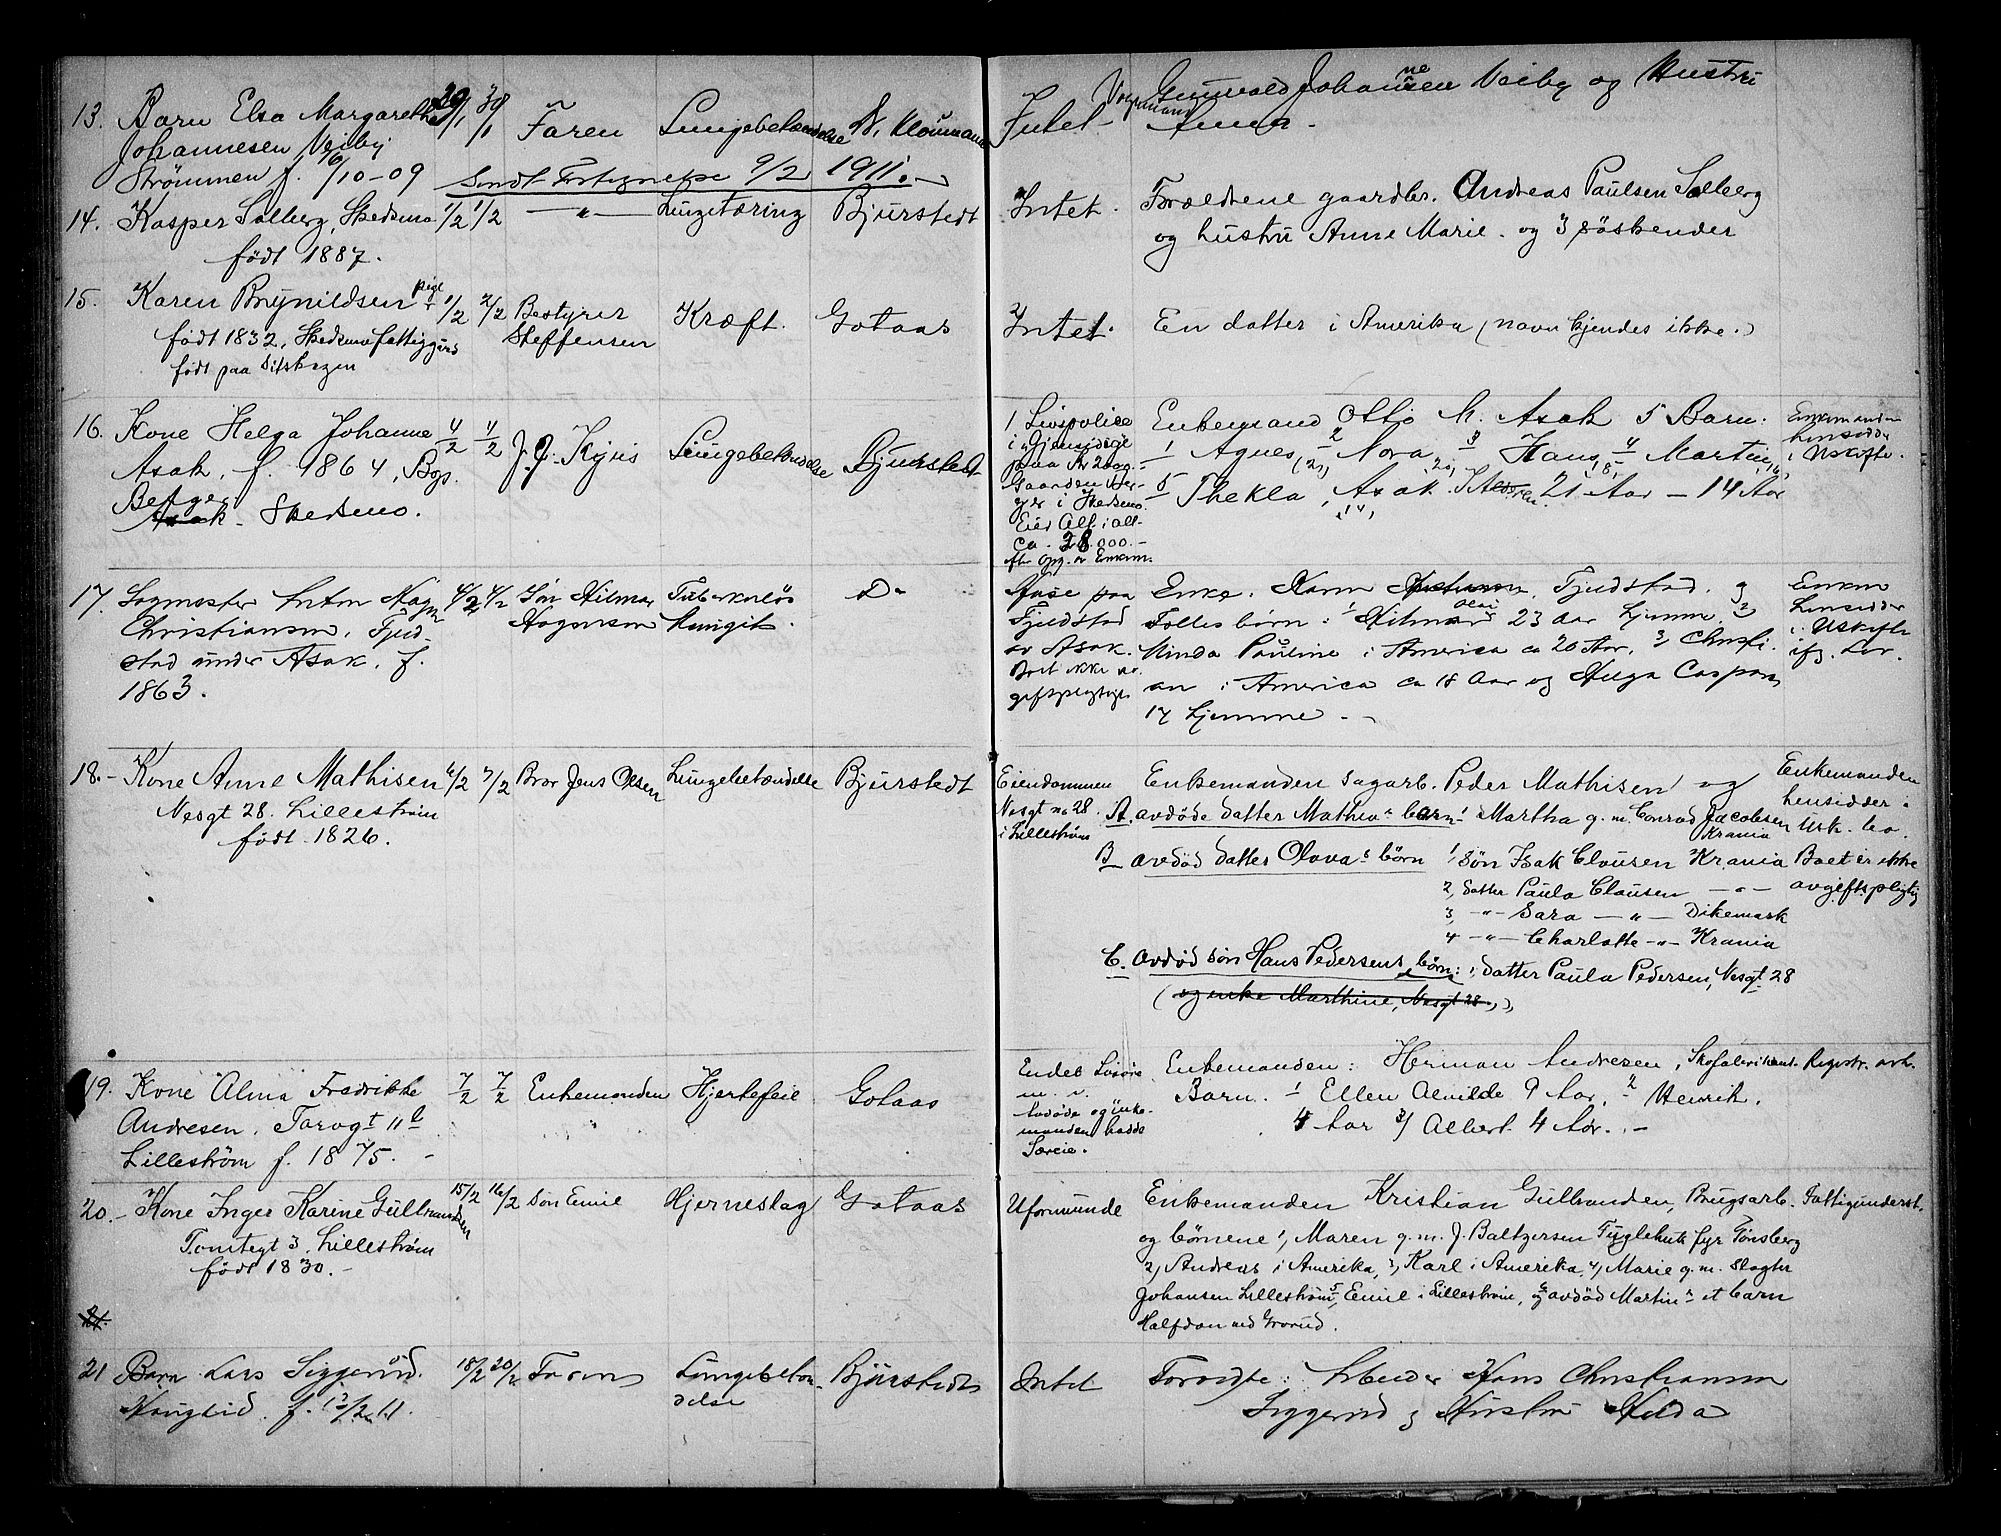 13. Barn Elsa Margarethe 30/1 30/1 Faren Lungebetændelse N. Kloumann
Johannesen Veiby
Strømmen f. 6/10-09
Sendt Fortegnelse 9/2 1911.
14. Kasper Solberg, Skedsmo 1/2 1/2 —"— Lungetæring Bjurstedt
født 1887.
15. Karen Brynildsen pige 1/2 2/2 Bestyrer Kræft. Gotaas
født 1832, Skedsmo fattiggård Steffensen
født paa
16. Kone Helga Johanne 4/2 4/2 J. J. Kjus Lungebetændelse Bjurstedt
Asak, f. 1864,
Berger
Asak - Skedsmo.
17. Sagmester Anton Hagn 4/2 4/2 Søn Hilmar Tuberkuløs D-
Christiansen, Tjud- Hagensen
stad under Asak. f.
1863.
18.- Kone Anne Mathisen 6/2 7/2 Bror Jens Olsen Lungebetændelse Bjurstedt
Nesgt 28. Lillestrøm
født 1826.
19. Kone Alma Fredrikke 7/2 7/2 Enkemanden Hjertefeil Gotaas
Andresen. Torvgt 11b
Lillestrøm f. 1875. -
20.- Kone Inger Karine Gulbrandsen 15/2 16/2 Søn Emil Hjerneslag Gotaas
Tomtegt 3. Lillestrøm
født 1830.-
21.
21 Barn Lars Siggerud. 18/2 20/2 Faren Lungebetæn- Bjurstedt
HaugLid. f. 13/2 11. delse
Gunvald Johannesen Veiby og Hustru
Intet Anna.
Intet. Forældrene gaardbr. Andreas Paulsen Solberg
og hustru Anne Marie. og 3 søskender
Intet. En datter i Amerika (navn kjendes ikke.)
1 Livspolice Enkemand Otto M. Asak 5 Barn: Enkemanden
i "Gjensidige 1 Agnes, (21) 2 Nora 20, 3 Hans, 18, 4 Martin, 16, hensidder
paa Kr 2000.- i Uskifte.
Gaarden Ber- 5 Thekla, Asak. 21 Aar - 14 Aar
ger i Skedsmo. 14,
Eier Alf. i alt
ca. 28.000.-
efter Opg. av Enkem.
Tjudstad Enke. Karen Tjudstad. og Enken
av Asak. Fælles børn: 1 Hilmar Olai 23 aar hjemme. 2 hensidder
Boet ikke av- Minda Pauline i America ca 20 Aar, 3 Christi. i Uskifte
giftspligtigt. an i America ca 18 Aar og Hugo Casper ifg. Lov.
17 hjemme. -
Eiendommen Enkemanden sagarb. Peder Mathisen og Enkemanden
Nesgt no 28. A. avdøde datter Mathea's barn 1 Martha g. m. Conrad Jacobsen Krania hensidder i
i Lillestrøm Usk. bo.
B avdød datter Olava's børn 1, søn Isak Clausen Krania Boet er ikke
2, datter Paula Clausen —"— avgiftspligtig
3, -"- Sara —"— Dikemark
4 -"- Charlotte -"- Krania
C. avdød søn Hans Pedersens børn: 1, datter Paula Pedersen, Nesgt. 28
(og enke Marthine, Nesgt 28.,)
Endel Løsøre Enkemanden: Herman Andresen, Skofabrikant. Registr. avh.
m. v. Barn. 1 Ellen Alvilde 9 Aar, 2 Henrik.
Avdøde og enke- 4 Aar 3/ Albert 4 Aar. -
manden hadde
Særeie.
Uformuende Enkemanden Kristian Gulbrandsen, Brugsarb. Fattigunderst.
og børnene 1, Maren g. m. J. Baltzersen Fuglehuk fyr Tønsberg
2, Andreas i Amerika, 3, Karl i Amerika, 4, Marie g. m. Slagter
Johansen Lillestrøm, 5 Emil i Lillestrøm, 6 og avdød Martin's et barn
Halfdan ved Grorud.
Intet Forældre: Arbeider Hans Christiansen
Siggerud og Hustru Hilda